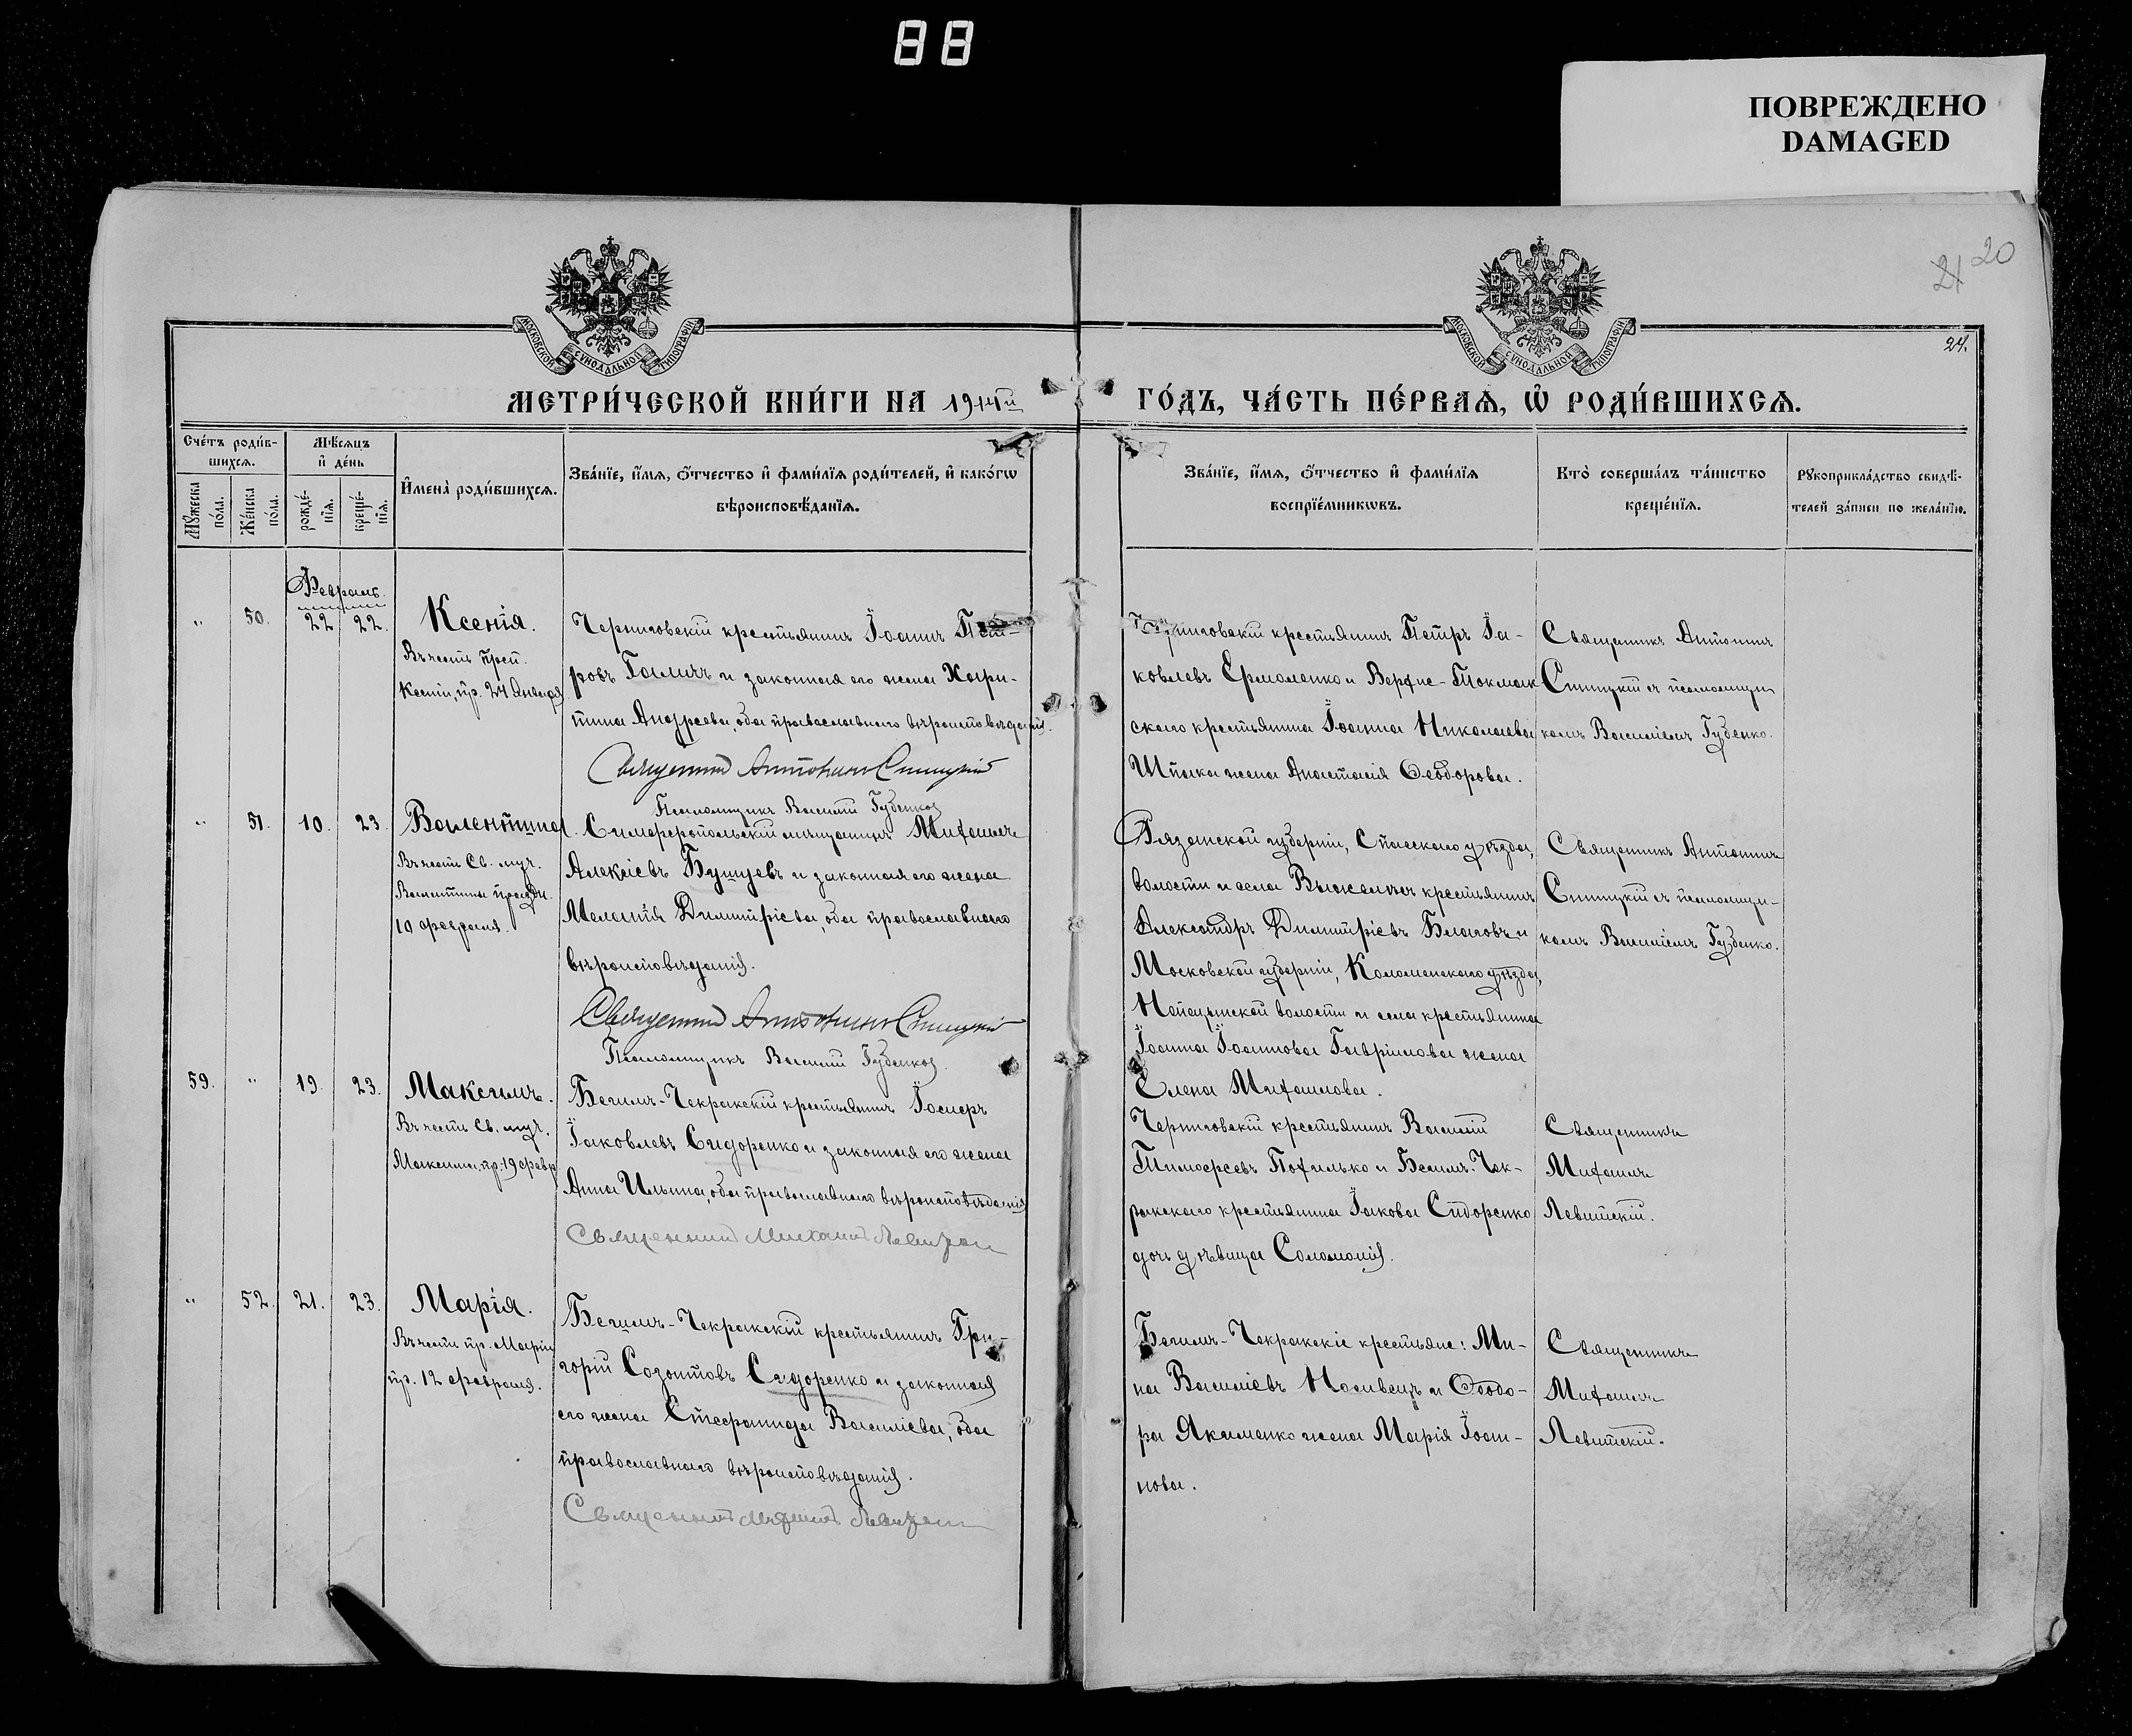 88
ПОВРЕЖДЕНО
DAMAGED
21 20
24.
МОСКОВСКОЙ СѴНОДАЛЬНОЙ ТИПОГРАФІИ
МОСКОВСКОЙ СѴНОДАЛЬНОЙ ТИПОГРАФІИ
МЕТРИ́ЧЕСКОЙ КНИ́ГИ НА 1914й ГО́ДЪ, ЧА́СТЬ ПЕ́РВАѦ, Ѡ҆ РОДИ́ВШИХСѦ.
Сче́тъ роди́в-
шихсѧ.
Мꙋ́жеска по́ла.
Же́нска по́ла.
Мѣ́сѧцъ
и҆ де́нь
рожде́-
нїѧ.
креще́-
нїѧ.
И҆мена̀ роди́вшихсѧ.
Зва́нїе, и҆́мѧ, ѻ҆́тчество и҆ фами́лїѧ роди́телей, и҆ како́гѡ
вѣроисповѣ́данїѧ.
Зва́нїе, и҆́мѧ, ѻ҆́тчество и҆ фами́лїѧ
воспрїе́мникѡвъ.
Кто̀ соверша́лъ та́инство
креще́нїѧ.
Рꙋкоприкла́дство свидѣ́-
телей за́писи по жела́нїю.
Февраль.
" 50. 22 22.
Ксенія.
Въ честь преп.
Ксеніи, пр. 24 Января
Черниговскій крестьянинъ Іоаннъ Пет-
ровъ Галичъ и законная его жена Хари-
тина Андреева, оба православнаго вѣроисповѣданія.
Священникъ Антонинъ Синицкій
Псаломщикъ Василій Губенко
Черниговскій крестьянинъ Петръ Іа-
ковлевъ Ермоленко и Верхне-Токмак
скаго крестьянина Іоанна Николаева
Шпака жена Анастасія Ѳеодорова.
Священникъ Антонинъ
Синицкій съ псаломщи
комъ Василіемъ Губенко.
" 51. 10. 23.
Валентина
Въ честь Св. муч.
Валентины праздн.
10 февраля.
Симферопольскій мѣщанинъ Михаилъ
Алексіевъ Бушуевъ и законная его жена
Меланія Димитріева, оба православнаго
вѣроисповѣданія.
Священникъ Антонинъ Синицкій
Псаломщикъ Василій Губенко.
Рязанской губерніи, Спасскаго уѣзда,
волости и села Выжелеса крестьянинъ
Александръ Димитріевъ Благовъ и
Московской губерніи, Коломенскаго уѣзда,
волости и села крестьянина
Іоанна Іоаннова Гаврилова жена
Елена Михаилова.
Священникъ Антонинъ
Синицкій съ псаломщи-
комъ Василіемъ Губенко.
59. " 19. 23.
Максимъ.
Въ честь Св. муч.
Максима, пр. 19 февр
Бегимъ-Чекракскій крестьянинъ Іосифъ
Іаковлевъ Сидоренко и законная его жена
Анна Ильина, оба православнаго вѣроисповѣданія
Священникъ Михаилъ Левитскій
Черниговскій крестьянинъ Василій
Тимоѳеевъ Похилько и Бегимъ-Чек-
ракскаго крестьянина Іакова Сидоренко
дочь дѣвица Соломонія.
Священникъ
Михаилъ
Левитскій.
" 52. 21. 23.
Марія.
Въ честь пр. Маріи
пр. 12 февраля.
Бегимъ-Чекракскій крестьянинъ Гри-
горій Созонтовъ Сидоренко и законная
его жена Стефанида Василіева, оба
православнаго вѣроисповѣданія.
Священникъ Михаилъ Левитскій
Бегимъ-Чекракскіе крестьяне: Ми-
на Василіевъ Носивецъ и Ѳеодо-
ра Якименко жена Марія Іоан-
нова.
Священникъ
Михаилъ
Левитскій.